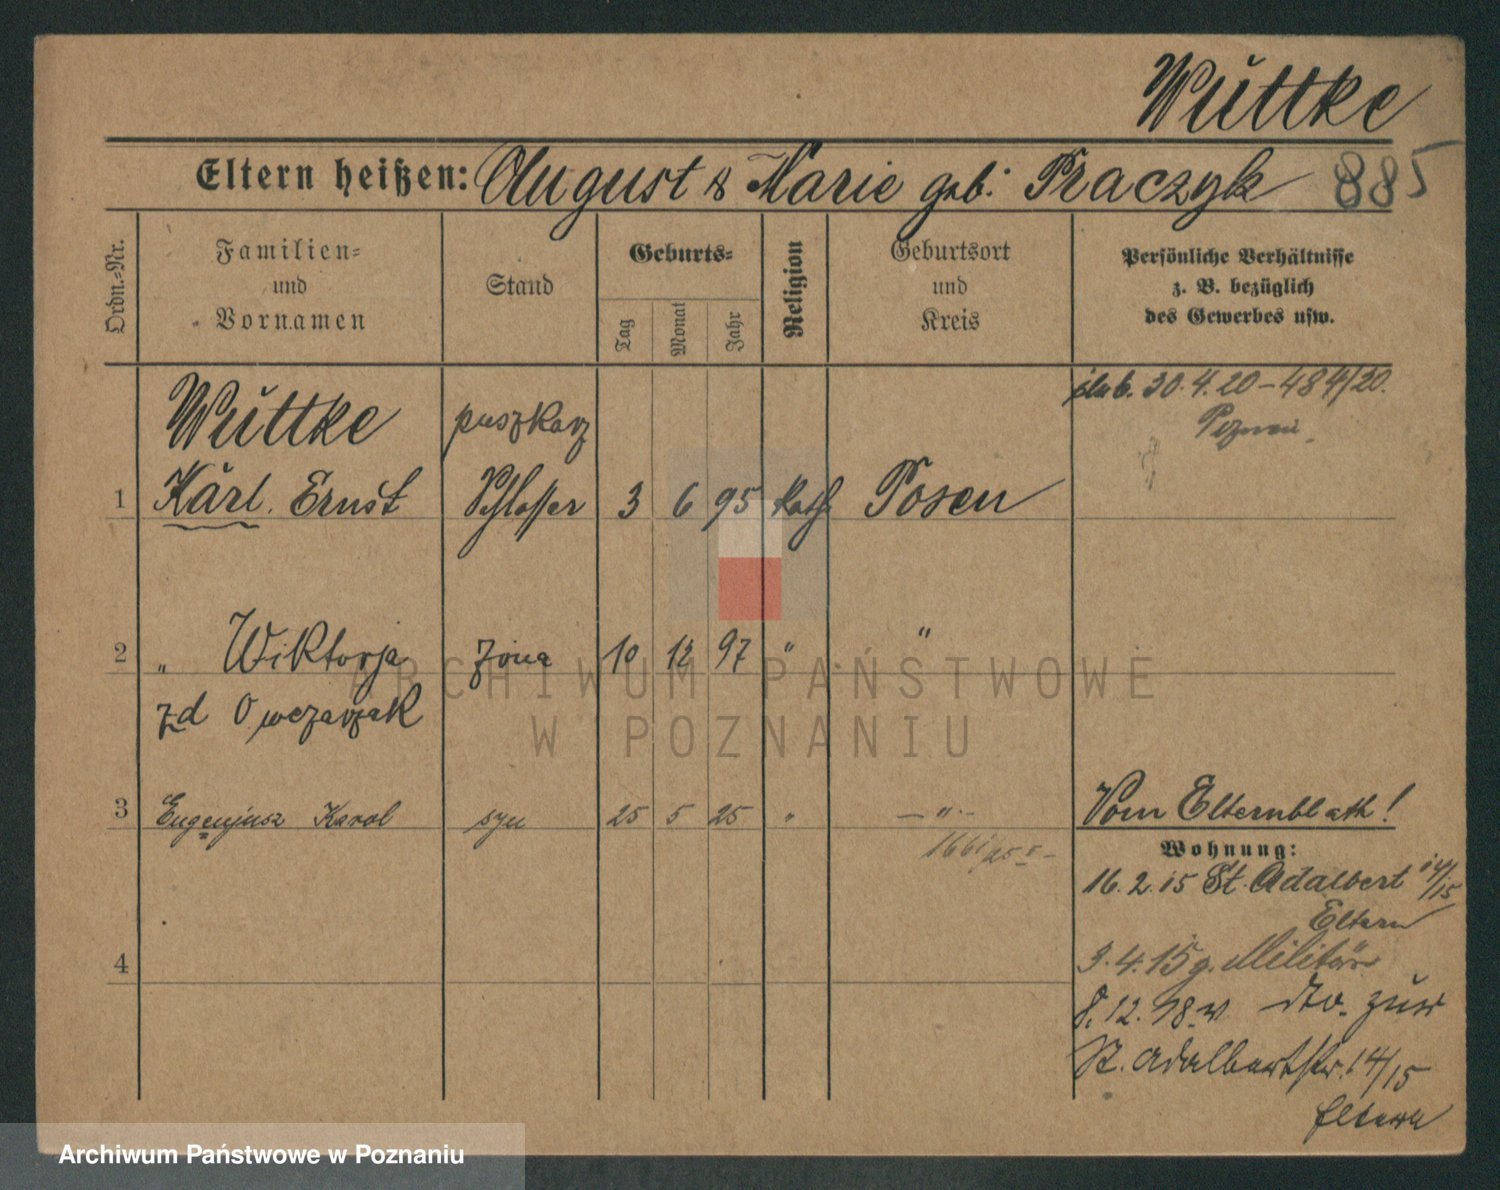 Wuttke
Eltern heißen: August & Marie geb. Praczyk 885
Ordn.-Nr.
Familien-
und
Vornamen
Stand
Geburts-
Tag
Monat
Jahr
Religion
Geburtsort
und
Kreis
Persönliche Verhältnisse
z. B. bezüglich
des Gewerbes usw.
ślub. 30.4.20 – 484/20.
Poznań
Wuttke puszkarz
1 Karl. Ernst Schlosser 3 6 95 Kath Posen
2 " Wiktorja żona 10 12 97 " "
zd Owczarzak
3 Eugenjusz Karol syn 25 5 25 " — " —
Vom Elternblatt!
Wohnung:
16.2.15 St. Adalbert 14/15
Eltern
4
3.4.15 g. Militär
8.12.18 v. dto. zur
St. Adalbertstr. 14/15
Eltern
ARCHIWUM PAŃSTWOWE
W POZNANIU
Archiwum Państwowe w Poznaniu